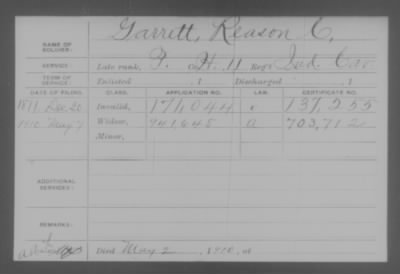 Garrett, Reason C.
NAME OF SOLDIER:
SERVICE: Late rank, P. Co. H, 11 Reg't Ind. Cav
TERM OF SERVICE: Enlisted , 1 Discharged , 1
DATE OF FILING. CLASS. APPLICATION NO. LAW. CERTIFICATE NO.
Dec 20 Invalid, 171,044 137,255
1910 May 7 Widow, 941,645 a 703,712
Minor,
ADDITIONAL SERVICES:
REMARKS:
Died May 2, 1910, at